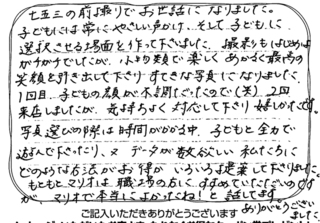 七五三の前撮りでお世話になりました。
子どもには常にやさしい声かけ、そして子どもに
選択させる場面を作って下さいました。撮影もはじめは
ガチガチでしたが、小物類で楽しくあかるく最高の
笑顔を引き出して下さり すてきな写真になりました。
1回目、子どもの顔が不調だったので(笑) 2回
来店しましたが、気持ちよく対応して下さり嬉しかったです。
写真選びの際は時間がかかる中、子どもと全力で
遊んで下さったり、又データが数欲しい私たちに
どのような方法がお得か いろいろ提案して下さりました。
もともとマリオは職場の方に すすめていただいたのです
が、マリオで本当によかったね!と話してます。
ありがとうござい
ました
ご記入いただきありがとうございます